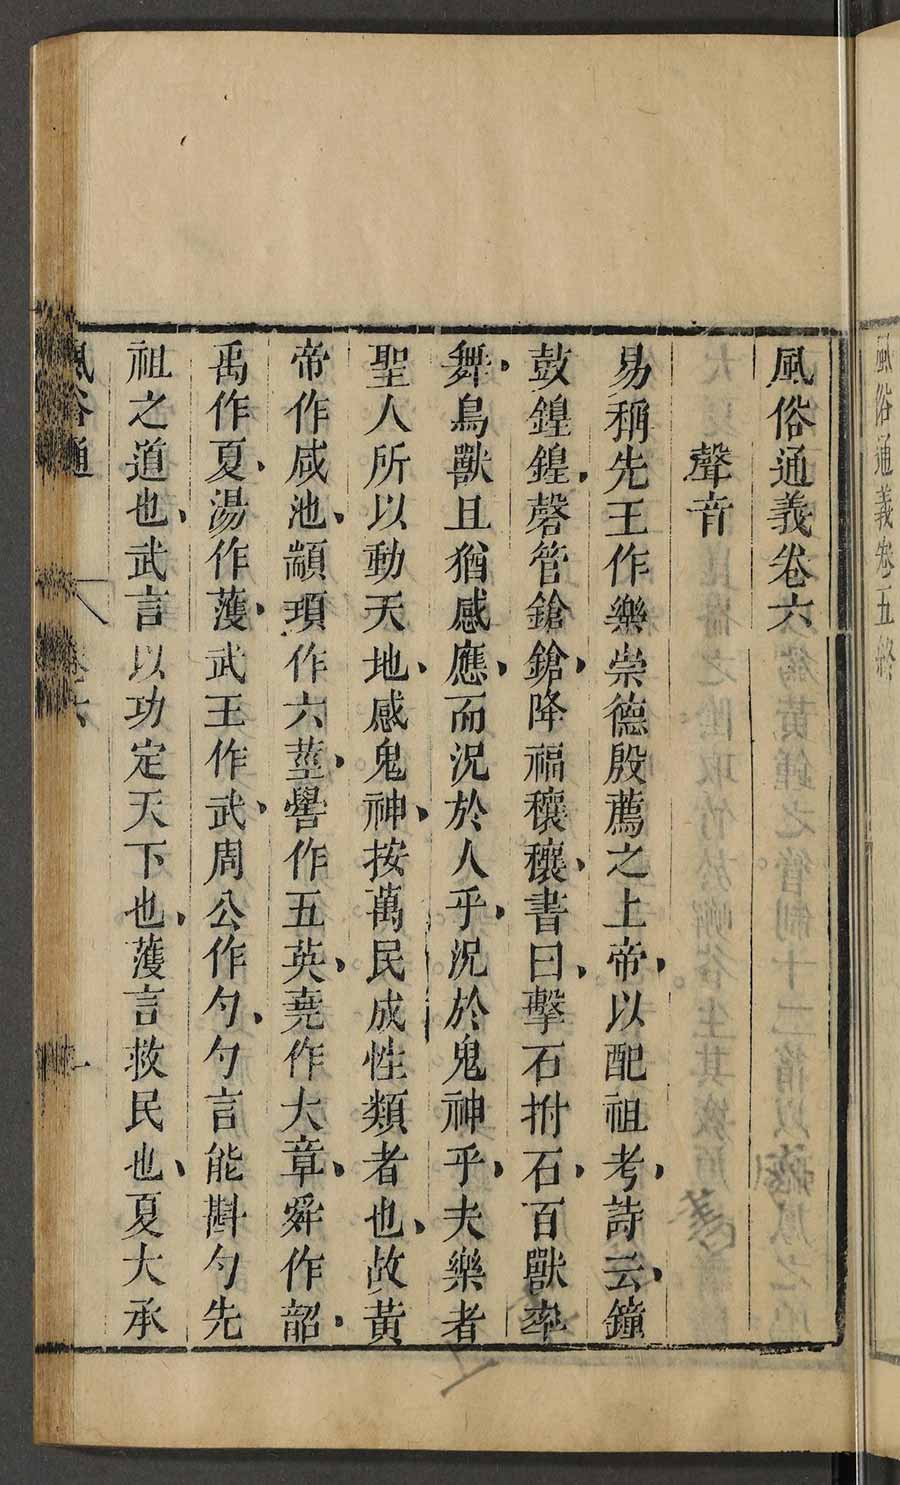 風俗通義卷六
聲音
易稱先王作樂崇德殷薦之上帝、以配祖考、詩云、鐘
鼓鍠鍠、磬管鎗鎗、降福穰穰、書曰、擊石拊石、百獸率
舞、鳥獸且猶感應、而況於人乎、況於鬼神乎、夫樂者
聖人所以動天地、感鬼神、按萬民成性類者也、故黃
帝作咸池、顓頊作六莖、嚳作五英、堯作大章、舜作韶、
禹作夏、湯作濩、武王作武、周公作勺、勺言能斟勺先
祖之道也、武言以功定天下也、濩言救民也、夏大承
風俗通 卷六 一
風俗通義卷五終